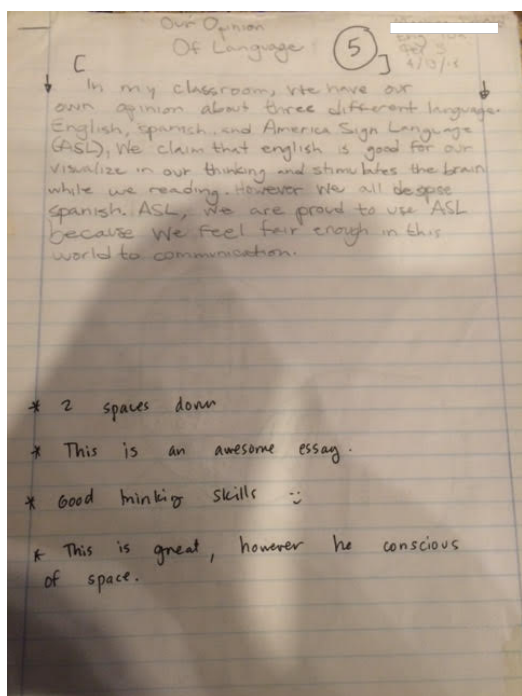 Our Opinion
Of Language
5
Per 3
4/13/15
In my classroom, we have our
own opinion about three different language.
English, spanish, and America Sign Language
(ASL), We claim that english is good for our
visualize in our thinking and stimulates the brain
while we reading. However We all despise
spanish. ASL, we are proud to use ASL
because We feel fair enough in this
world to communication.
* 2 spaces down
* This is an awesome essay.
* Good thinking skills :)
* This is great, however be conscious
of space.